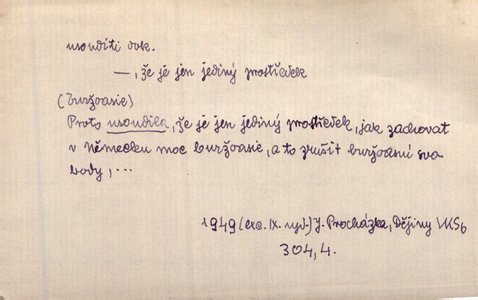 usouditi dok.
—, že je jen jediný prostředek
(buržoasie)
Proto usoudila, že je jen jediný prostředek, jak zachovat
v Německu moc buržoasie, a to zrušit buržoasní svo
body, ...
1949 (exc. IX. vyd.) J. Procházka, Dějiny VKSb
304, 4.